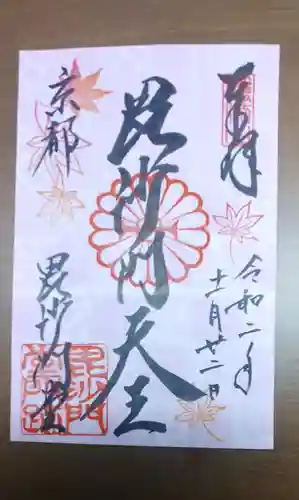 奉拝
令和二年
十一月廿二日
毘沙門天王
京都
毘沙門堂